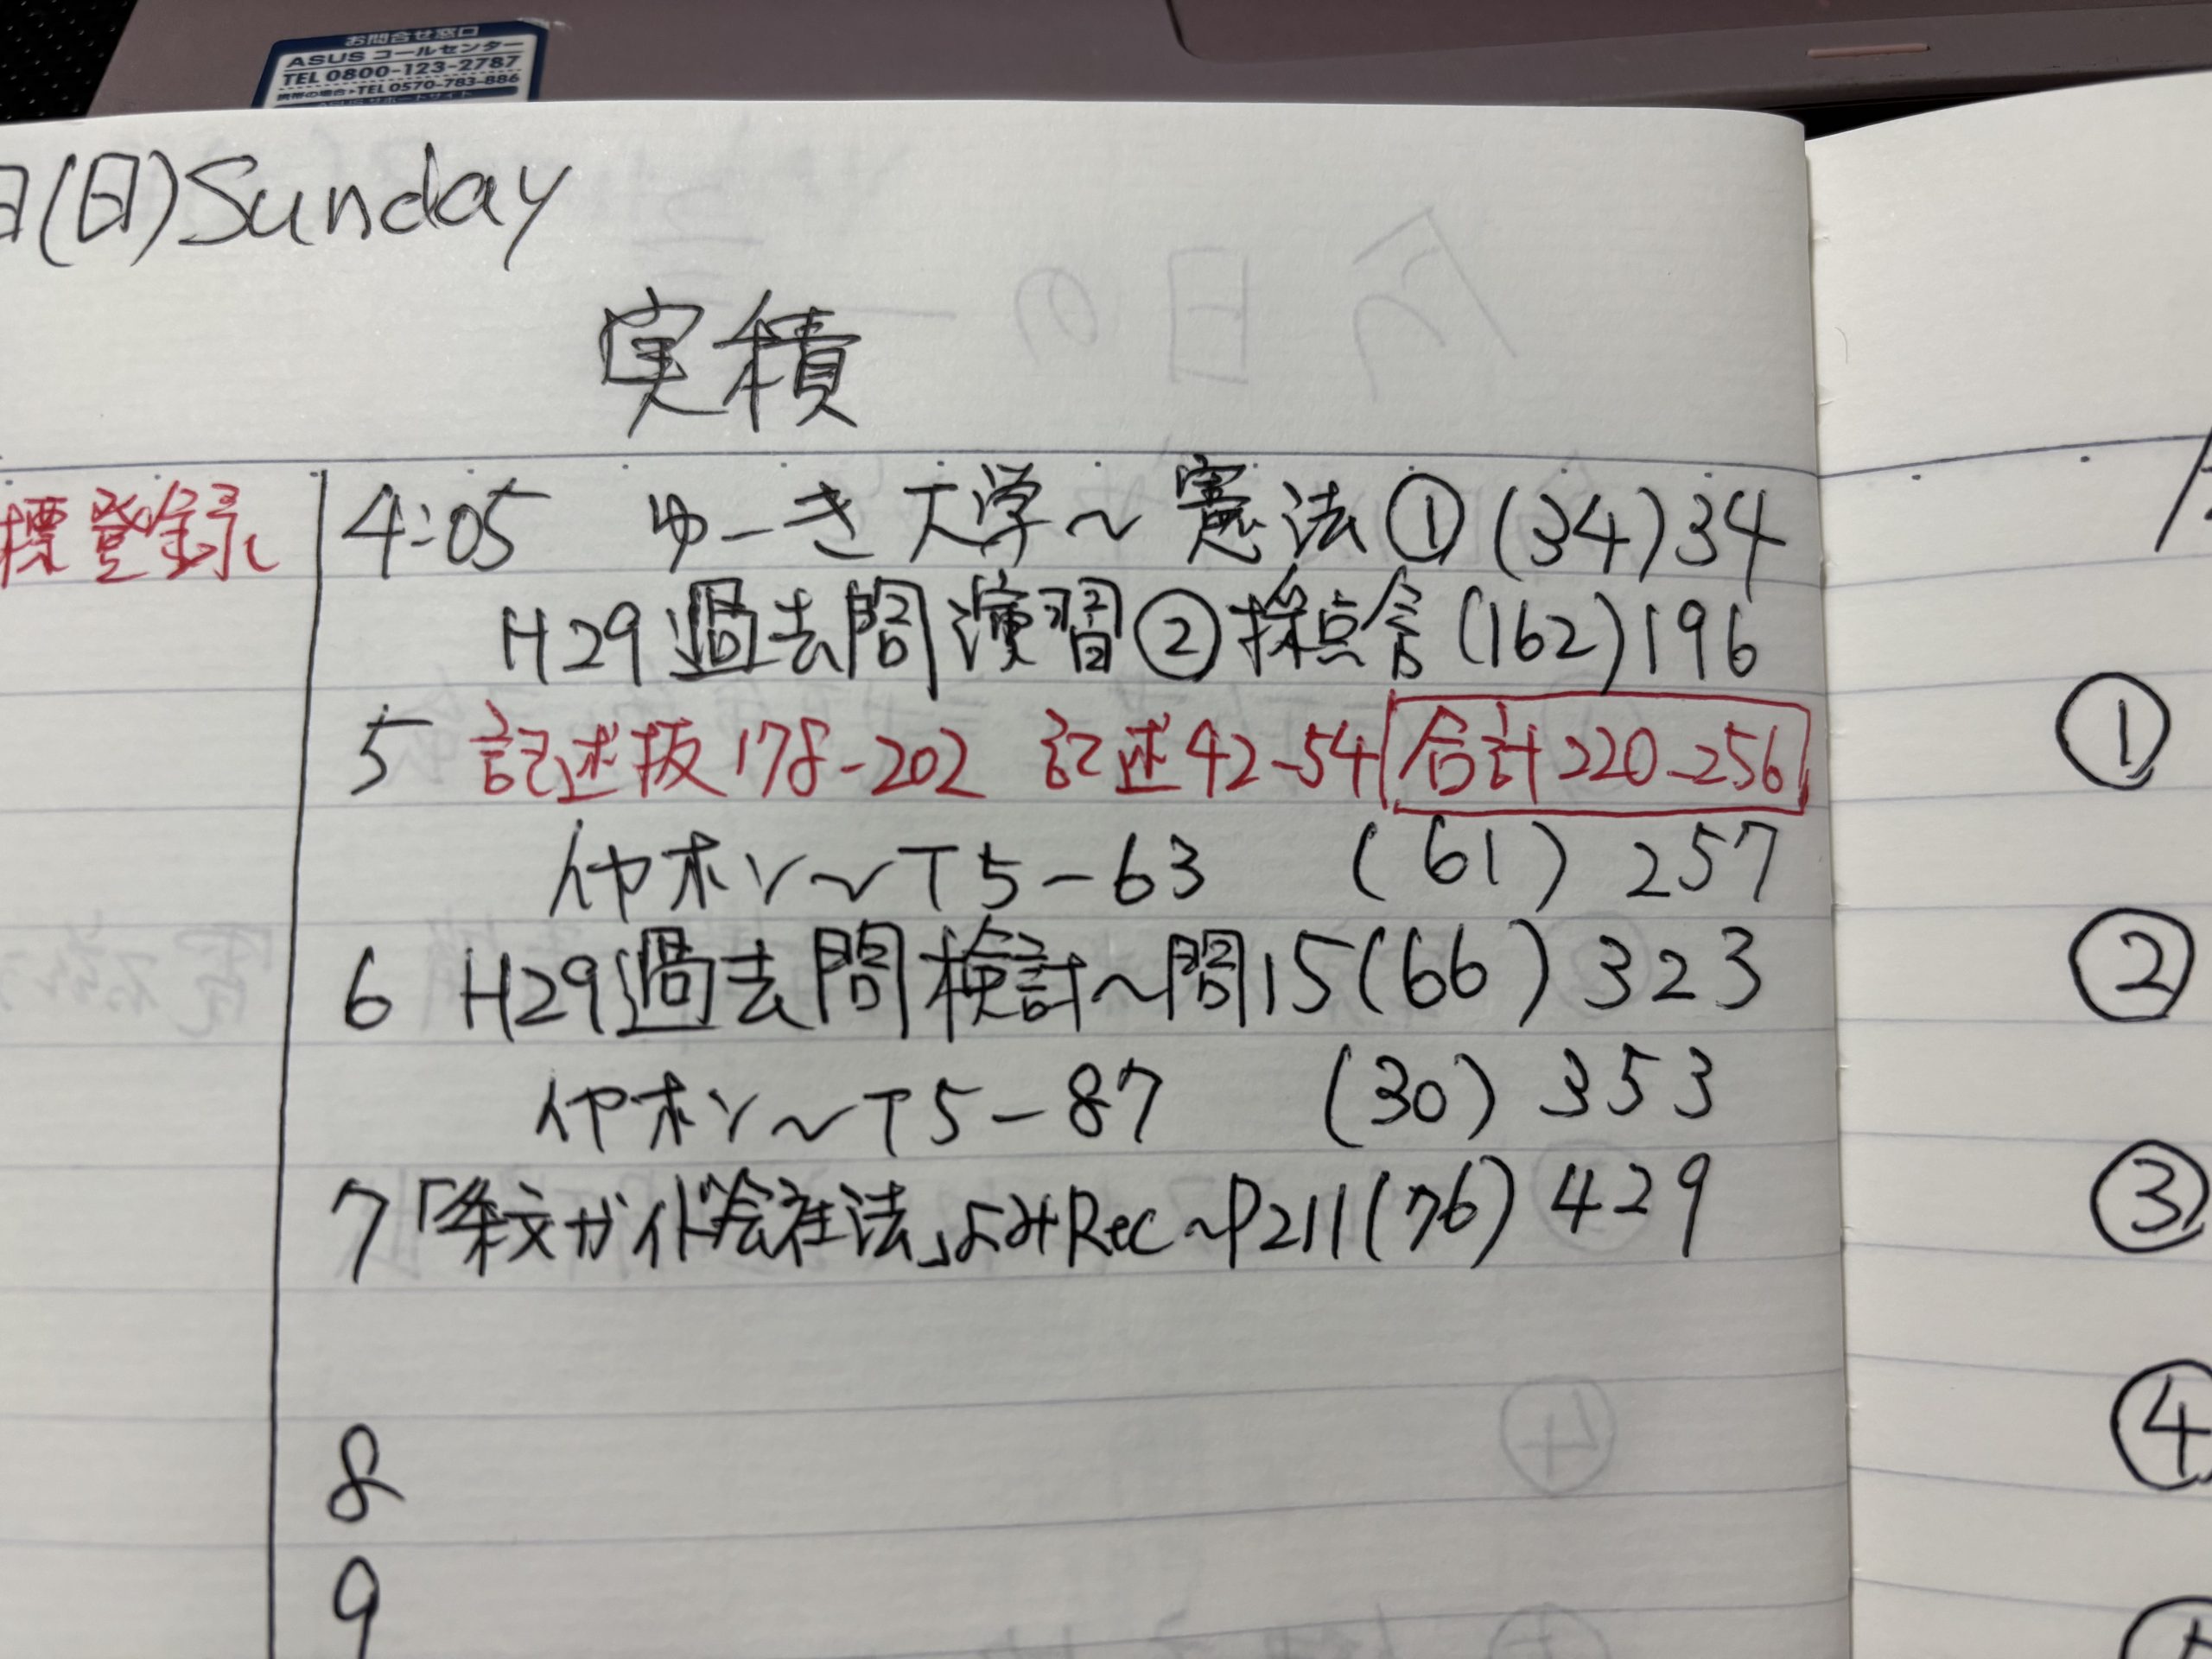 お問合せ窓口
ASUS コールセンター
TEL 0800-123-2787
携帯の場合▶TEL 0570-783-886
ASUS サポートサイト
日(日)Sunday
実積
標登録
4:05 ゆーき大学~憲法①(34)34
H29過去問演習②採点含(162)196
5 記述抜178-202 記述42-54 合計220-256
イヤホン~T5-63 (61) 257
6 H29過去問検討~問15(66)323
イヤホン~T5-87 (30) 353
7「条文ガイド会社法」よみRec~P211(76)429
8
9
①
②
③
④